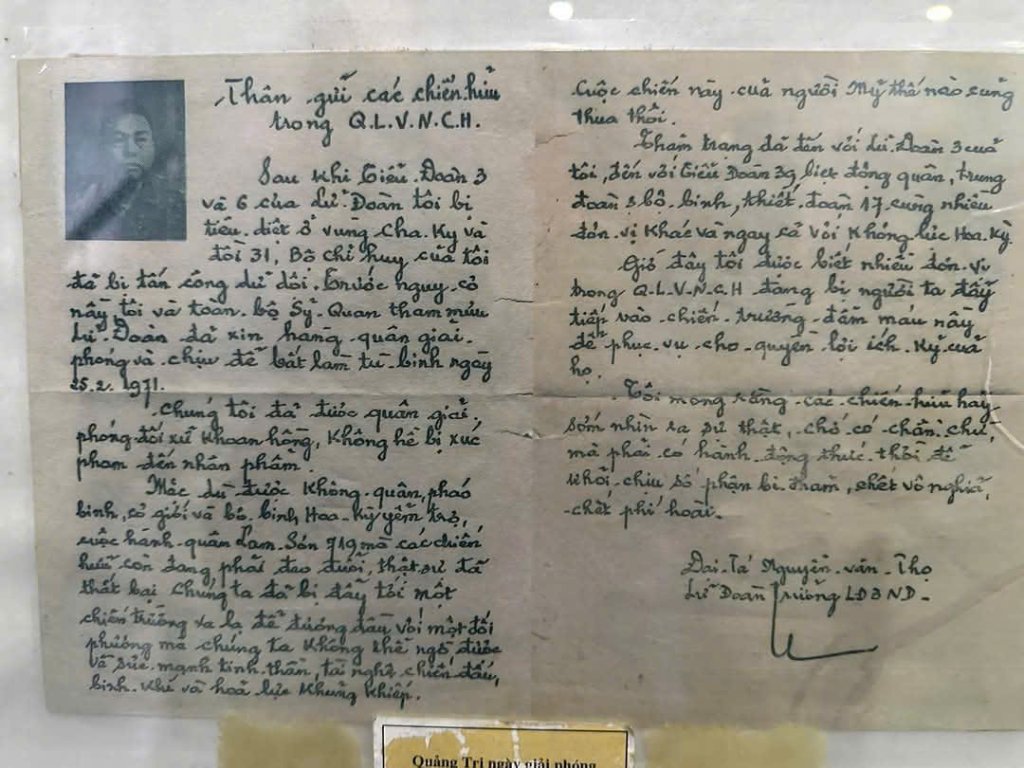 Thân gửi các chiến hữu
trong Q.L.V.N.C.H.
Sau khi Tiểu Đoàn 3
và 6 của Lữ Đoàn tôi bị
tiêu diệt ở vùng Cha Ky và
đồi 31, Bộ chỉ huy của tôi
đã bị tấn công dữ dội. Trước nguy cơ
này tôi và toàn bộ Sỹ Quan tham mưu
Lữ Đoàn đã xin hàng quân giải
phóng và chịu để bắt làm tù binh ngày
25.2.1971.
Chúng tôi đã được quân giải
phóng đối xử khoan hồng, không hề bị xúc
phạm đến nhân phẩm.
Mặc dù được không quân, pháo
binh, cơ giới và bộ binh Hoa Kỳ yểm trợ,
cuộc hành quân Lam Sơn 719 mà các chiến
hữu còn đang phải đeo đuổi, thật sự đã
thất bại. Chúng ta đã bị đẩy tới một
chiến trường xa lạ để đương đầu với một đối
phương mà chúng ta không thể ngờ được
về sức mạnh tinh thần, tài nghệ chiến đấu,
binh khí và hoả lực khủng khiếp.
Cuộc chiến này của người Mỹ thế nào cũng
thua thôi.
Thảm trạng đã đến với Lữ Đoàn 3 của
tôi, đến với Tiểu Đoàn 39 biệt động quân, trung
đoàn 3 bộ binh, thiết đoàn 17 cùng nhiều
đơn vị khác và ngay cả với Không lực Hoa Kỳ.
Giờ đây tôi được biết nhiều đơn vị
trong Q-L-V-N-C-H đang bị người ta đẩy
tiếp vào chiến trường đẫm máu này
để phục vụ cho quyền lợi ích kỷ của
họ.
Tôi mong rằng các chiến hữu hãy
sớm nhìn ra sự thật, chớ có chần chừ,
mà phải có hành động thức thời để
khỏi chịu số phận bi thảm, chết vô nghĩa,
chết phí hoài.
Đại Tá Nguyễn Văn Thọ
Lữ Đoàn Trưởng LĐ3ND
Quảng Trị ngày giải phóng